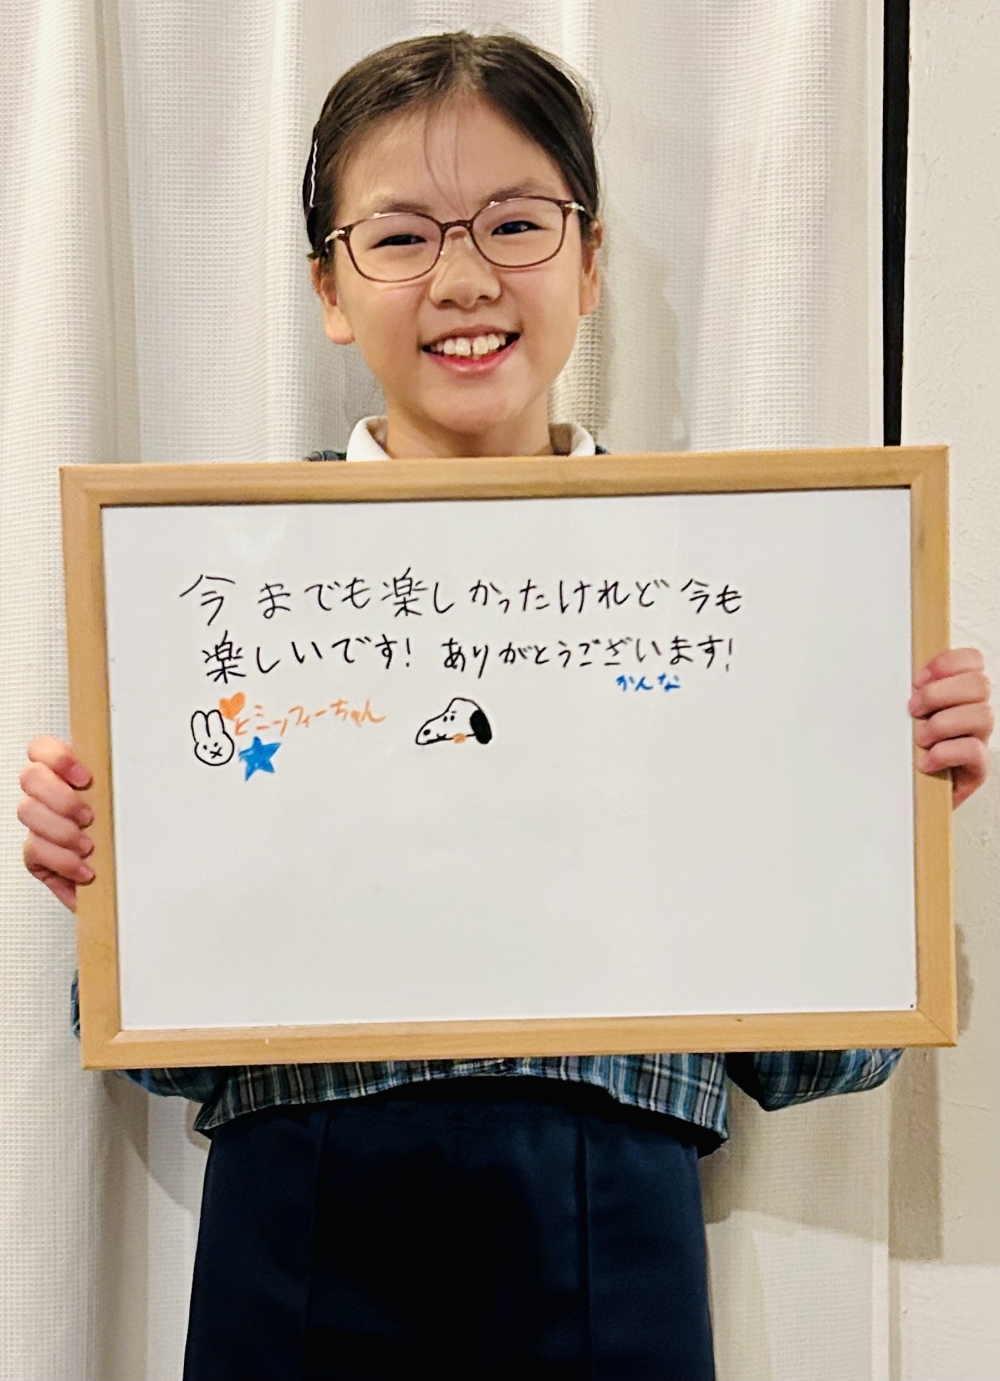 今までも楽しかったけれど今も
楽しいです！ありがとうございます！
かんな
とミッフィーちゃん